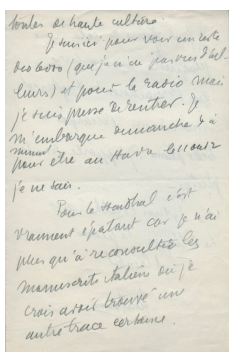 toutes de haute culture
Je suis ici pour voir un reste
(que je n'ai pas d'ail
leurs) et pour la radio mais
je suis pressé de rentrer. Je
m'embarque dimanche à
minuit
pour être au Havre le
je ne sais.
Pour le Stendhal c'est
vraiment épatant car je n'ai
plus qu'à reconsulter les
manuscrits italiens où je
crois avoir trouvé une
autre trace certaine.